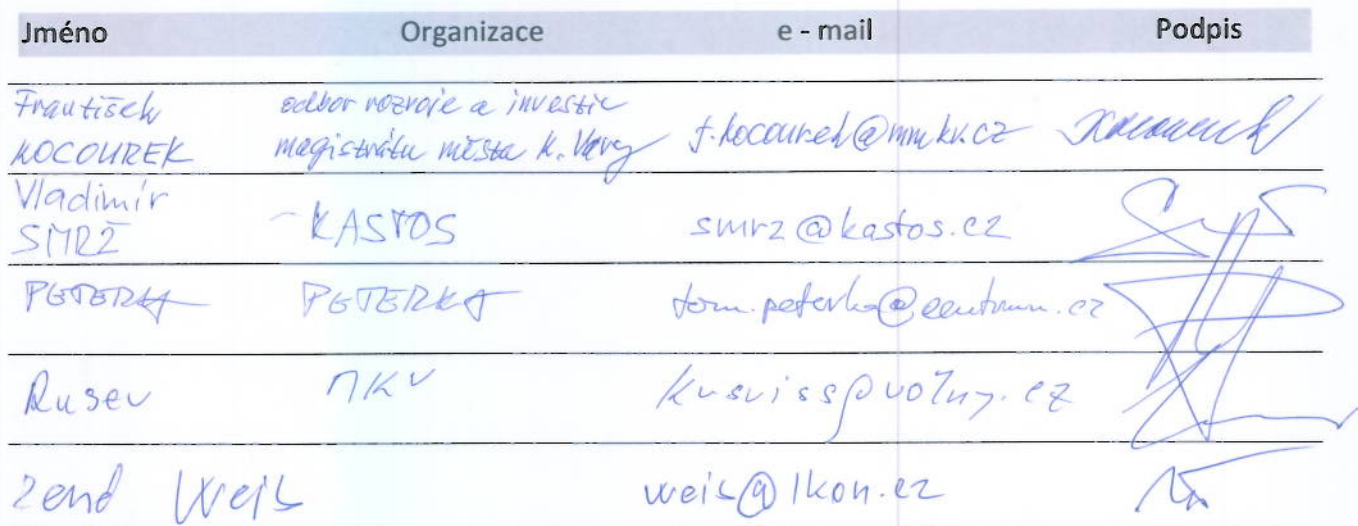 Jméno Organizace e - mail Podpis
František odbor rozvoje a investic
KOCOUREK magistrátu města K. Vary f.kocourek@mmkv.cz
Vladimír
SMRŽ KASTOS smrz@kastos.cz
PETERKA PETERKA tom.peterka@centrum.cz
Rusev MKV @volny.cz
Weis weis@ikon.cz